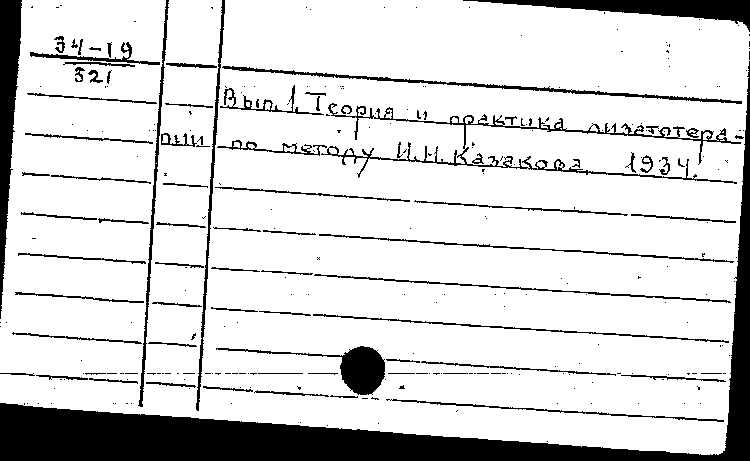 34-19
321
Вып. 1. Теория и практика лизатотера-
пии по методу И.Н. Казакова. 1934.